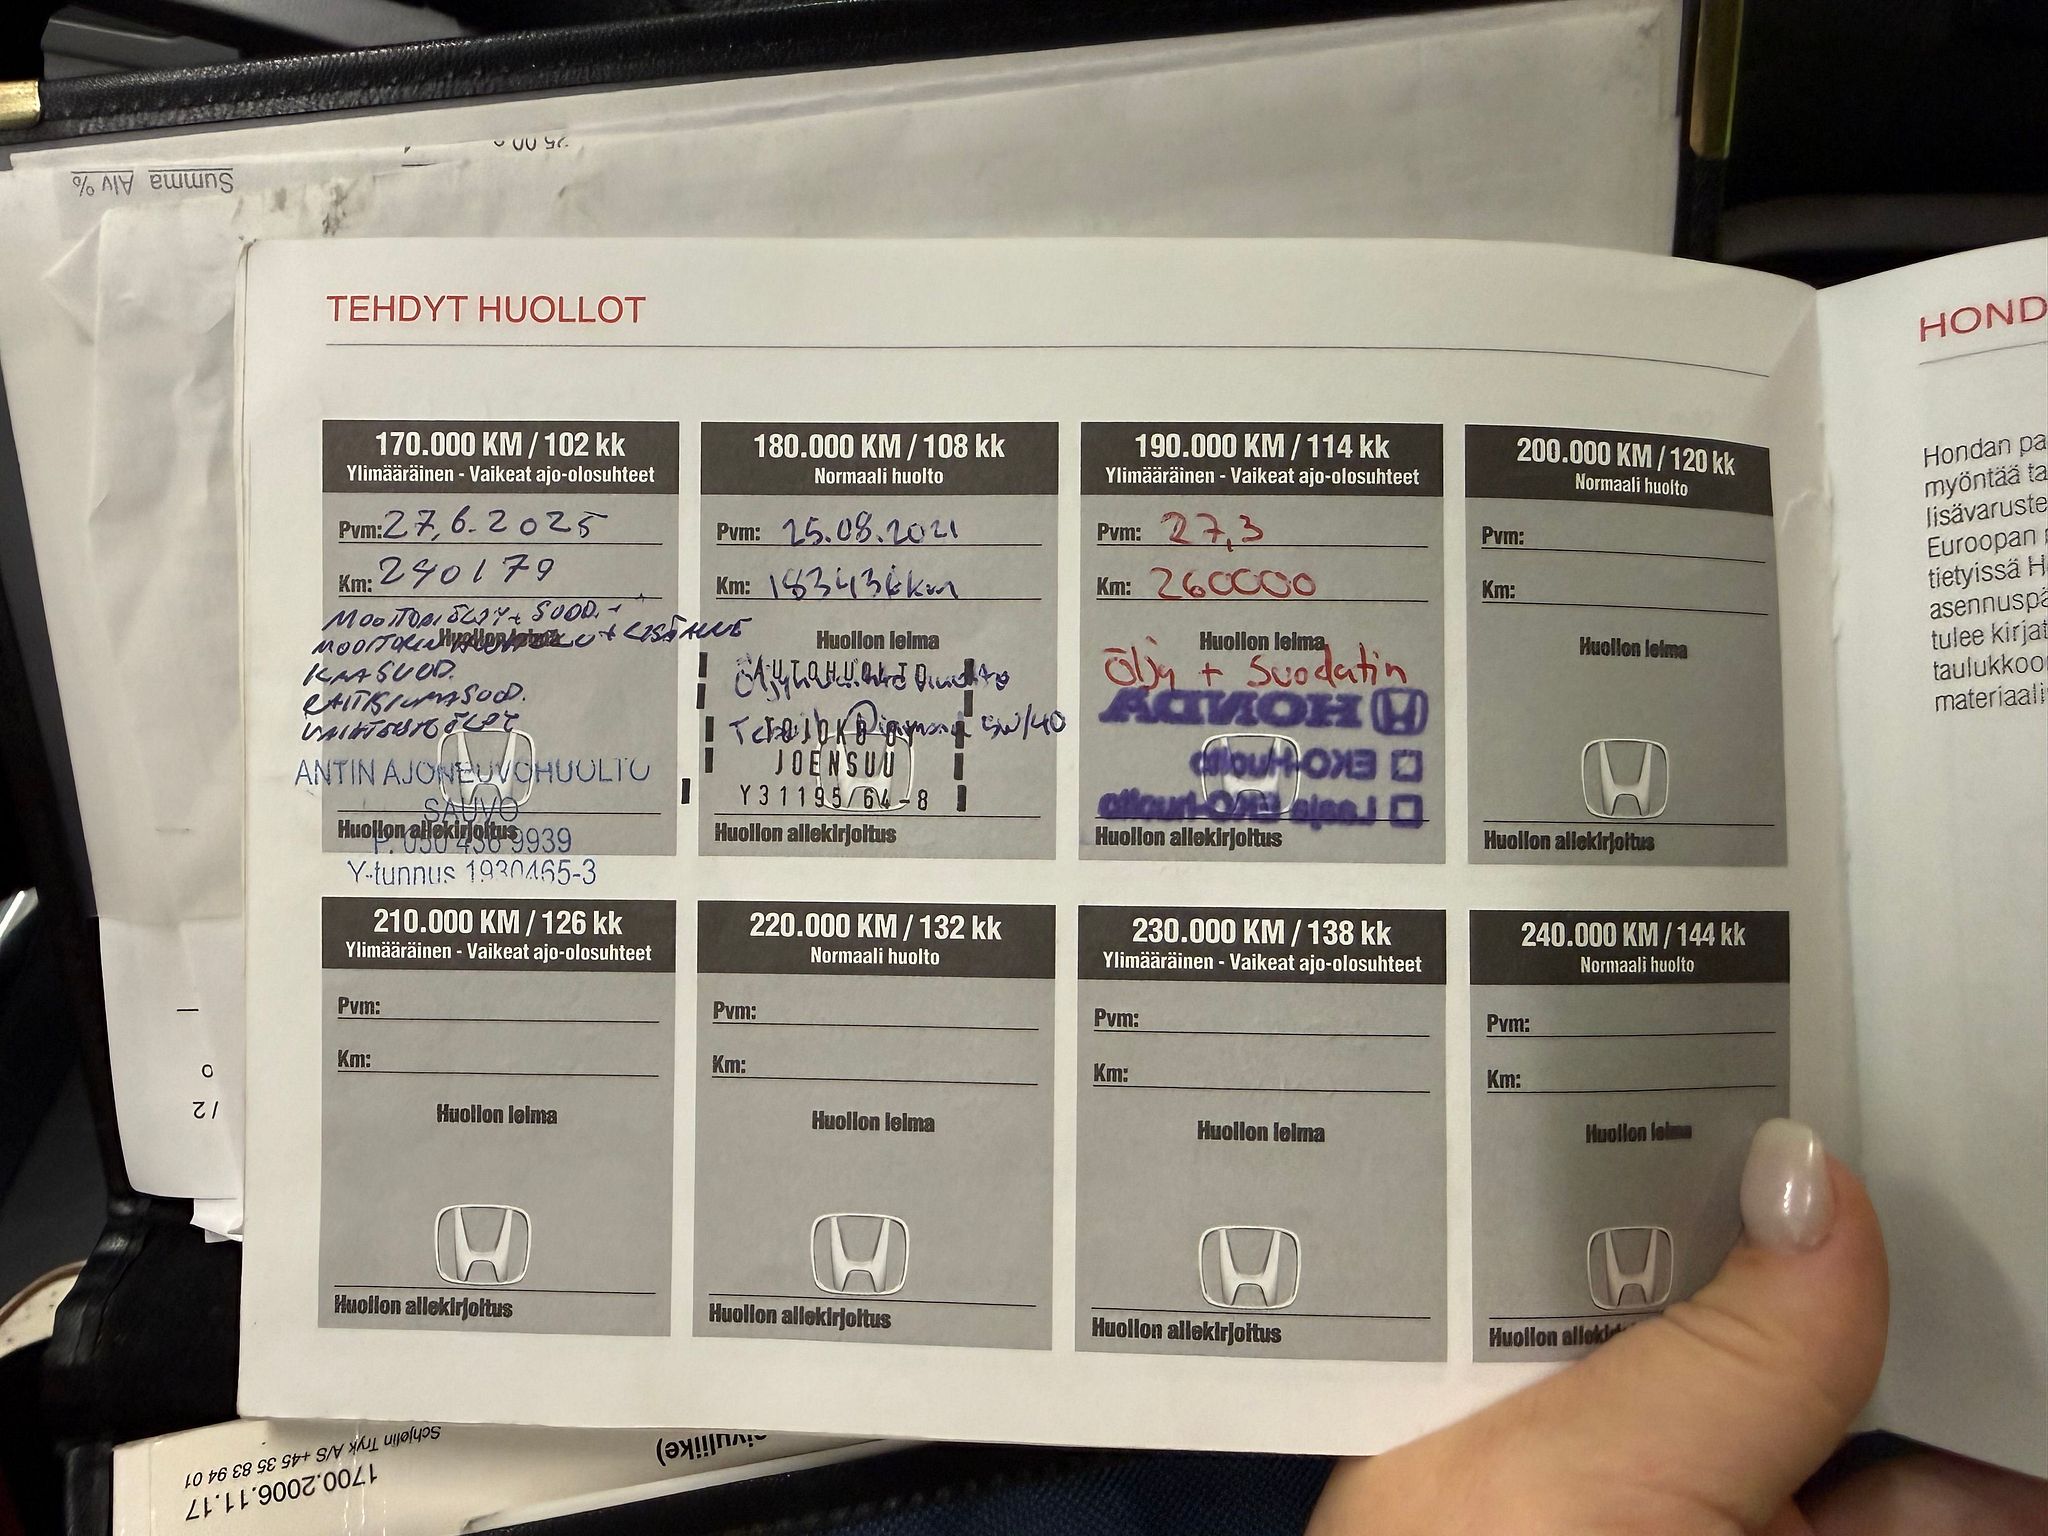 Summa Alv %
25.00
TEHDYT HUOLLOT
170.000 KM / 102 kk
Ylimääräinen - Vaikeat ajo-olosuhteet
Pvm: 27.6.2025
Km: 240179
MOOTTORIÖLJY + SUOD. +
MOOTTORIN + LISÄAINE
ILMASUOD.
RAITISILMASUOD.
VAIHTEISTOÖLJY
Huollon leima
ANTIN AJONEUVOHUOLTO
SAUVO
P. 050 436 9939
Huollon allekirjoitus
Y-tunnus 1930465-3
180.000 KM / 108 kk
Normaali huolto
Pvm: 25.08.2021
Km: 183436km
Huollon leima
AUTOHUOLTO
TOJOKO OY
5W/40
JOENSUU
Y31195/64-8
Huollon allekirjoitus
190.000 KM / 114 kk
Ylimääräinen - Vaikeat ajo-olosuhteet
Pvm: 27,3
Km: 260000
Huollon leima
Öljy + Suodatin
HONDA
EKO-Huolto
Laaja EKO-huolto
Huollon allekirjoitus
200.000 KM / 120 kk
Normaali huolto
Pvm:
Km:
Huollon leima
Huollon allekirjoitus
210.000 KM / 126 kk
Ylimääräinen - Vaikeat ajo-olosuhteet
Pvm:
Km:
Huollon leima
Huollon allekirjoitus
220.000 KM / 132 kk
Normaali huolto
Pvm:
Km:
Huollon leima
Huollon allekirjoitus
230.000 KM / 138 kk
Ylimääräinen - Vaikeat ajo-olosuhteet
Pvm:
Km:
Huollon leima
Huollon allekirjoitus
240.000 KM / 144 kk
Normaali huolto
Pvm:
Km:
Huollon leima
Huollon
HOND
Hondan pa
myöntää ta
lisävaruste
Euroopan
tietyissä H
asennuspä
tulee kirjat
taulukkoo
materiaali
Schjølin Tryk A/S +45 35 83 94 01
1700.2006.11.17
sivuliike)